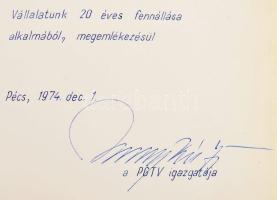 Vállalatunk 20 éves fennállása
alkalmából, megemlékezésül
Pécs, 1974. dec. 1.
a PGTV igazgatója